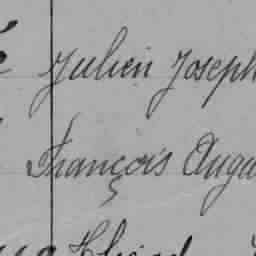 Julien Joseph
François Augu